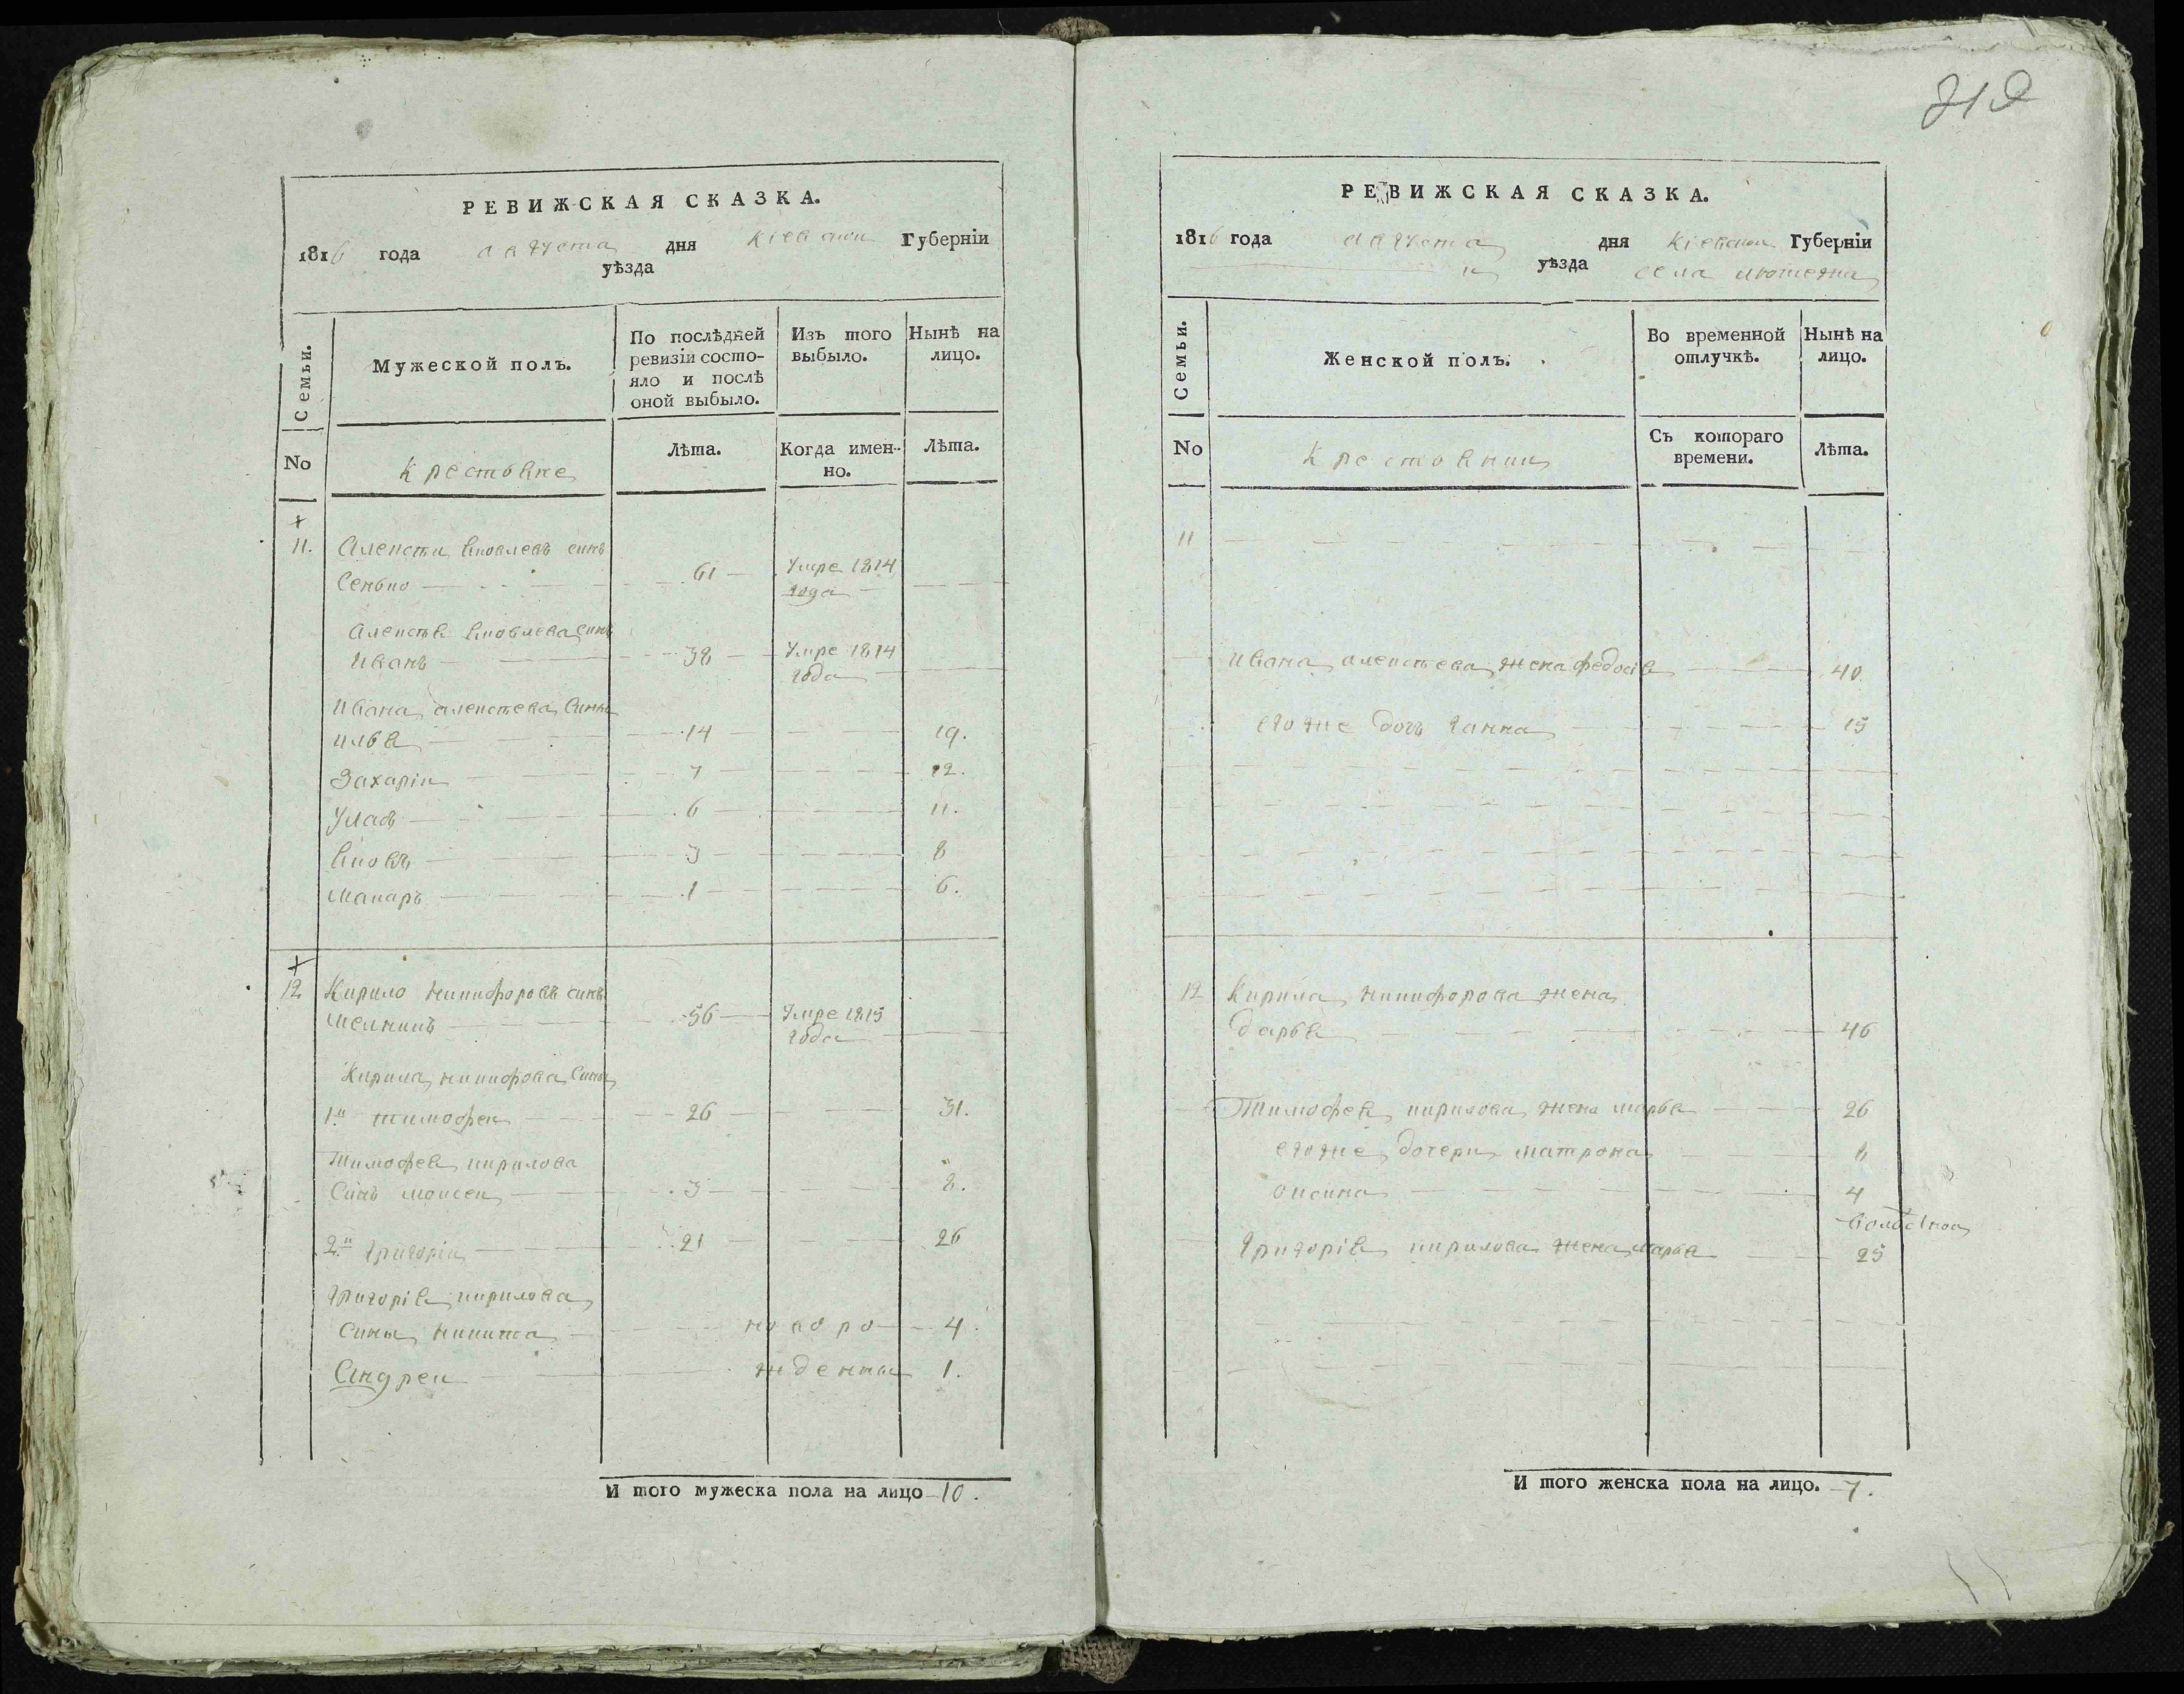 РЕВИЖСКАЯ СКАЗКА.
1816 года августа дня Кіевской Губерніи
уѣзда
Семьи.
Мужеской полъ.
По послѣдней ревизіи состо-
яло и послѣ
оной выбыло.
Изъ того
выбыло.
Нынѣ на
лицо.
No
Крестьяне
Лѣта.
Когда имен-
но.
Лѣта.
11. Алексѣй Яковлевъ синъ
Сенько 61 Умре 1814
года
Алексѣя Яковлева синъ
Иванъ 38 Умре 1814
года
Ивана Алексѣева Сины
Илья 14 19.
Захарій 7 12.
Улас 6 11.
Яковъ 3 8
Макаръ 1 6.
12 Кирило Никифоровъ синъ
Мелникъ 56 Умре 1815
года
Кирила Никифрова Сины
1й Тимофей 26 31.
Тимофея Кирилова
Синъ Моисей 3 8.
2й Григорій 21 26
Григорія Кирилова
Сины Никита новоро 4.
Андрей жденны 1.
И того мужеска пола на лицо 10.
219
РЕВИЖСКАЯ СКАЗКА.
1816 года августа дня Кіевской Губерніи
уѣзда села Лютежа
Семьи.
Женской полъ.
Во временной
отлучкѣ.
Нынѣ на
лицо.
No
Крестьянки
Съ котораго
времени.
Лѣта.
11
Ивана Алексѣева жена Федосія 40
его же дочь Ганна 15
12 Кирила Никифорова жена
Дарья 46
Тимофея Кирилова жена Марья 26
его же дочери Матрона 8
Оксина 4
Григорія Кирилова жена Марья 25
И того женска пола на лицо. 7.